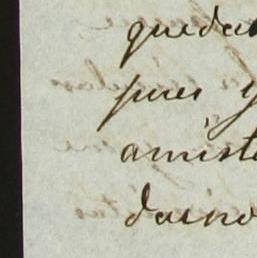 queda
pues y
amist
darno